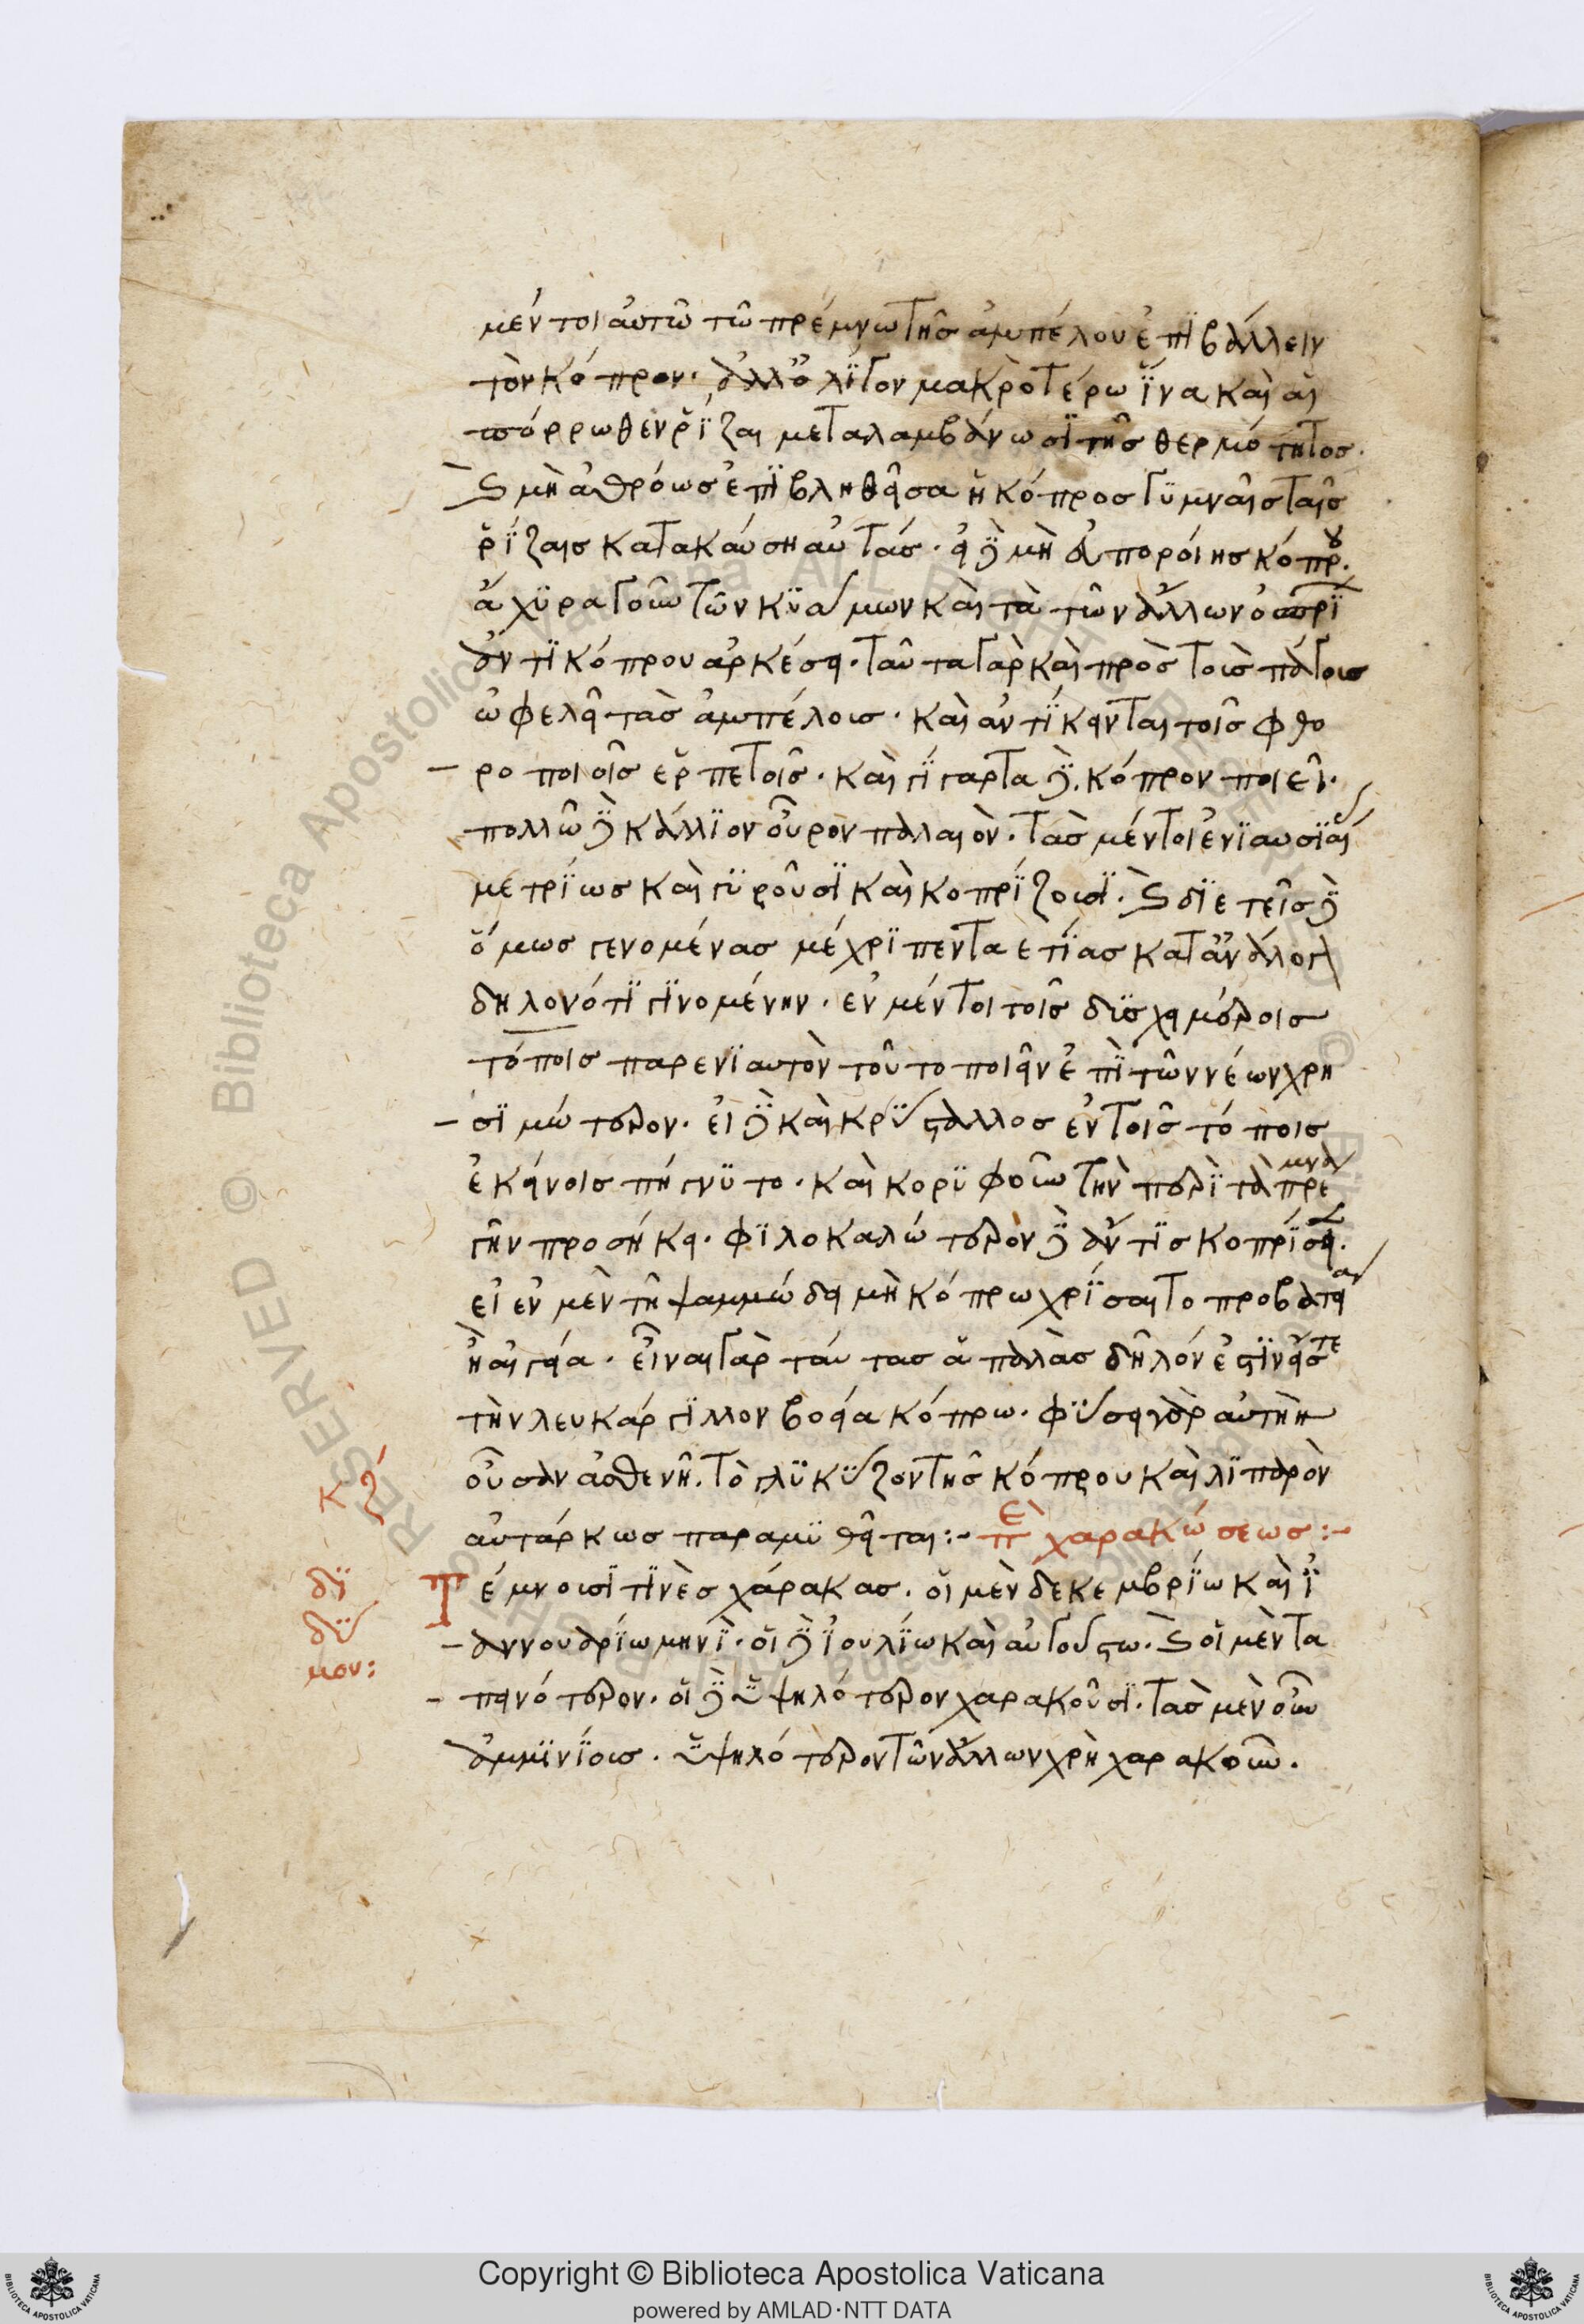 μέντοι αὐτῶ τῶ πρέμνω τῆς ἀμπέλου ἐπϊβάλλειν
τὸν κόπρον· ἀλλ' ὀλΐγον μακρὸτέρω ἵνα καὶ αἱ
πόρρωθεν ῥΐζαι μεταλαμβάνωσϊ τῆς θερμότητος·
καὶ μὴ ἀθρόως ἐπϊβληθεῖσα ἡ κόπρος γϋμναῖς ταῖς
ῥΐζαις κατακαύση αὐτάς· εἰ δὲ μὴ εὐποροίης κόπρου·
ἄχϋρα γοῦν τῶν κϋάμων καὶ τὰ τῶν ἄλλων ὀσπρΐ
ἀντϊ κόπρου ἀρκέσει· ταῦτα γὰρ καὶ πρὸς τοὺς πάγους
ὠφελεῖ τὰς ἀμπέλους· καὶ ἀντΐκεινται τοῖς φθο
ροποιοῖς ἑρπετοῖς· καὶ γΐγαρτα δὲ κόπρον ποιεῖ·
πολλῶ δὲ κάλλϊον οὖρον παλαιὸν· τὰς μέντοι ἐνϊαυσϊαί
μετρΐως καὶ γϋροῦσϊ καὶ κοπρΐζουσϊ· καὶ δϊετεῖς δὲ
ὅμως γενομένας μέχρϊ πενταετΐας κατ' ἀναλογ
δηλονότϊ γϊνομένην· ἐν μέντοι τοῖς δϋσχειμέροις
τόποις παρενϊαυτὸν τοῦτο ποιεῖν ἐπὶ τῶν νέων χρη
σϊμώτερον· εἰ δὲ καὶ κρΰσταλλος ἐν τοῖς τόποις
ἐκείνοις πήγνϋτο· καὶ κορϋφοῦν τὴν περϊ τὰ πρέμνα
γῆν προσήκει· φϊλοκαλώτερον δὲ ἄν τϊς κοπρΐσει·
εἰ ἐν μὲν τῆ ψαμμώδει μὴ κόπρω χρΐσαιτο προβατείαν
ἢ αἰγεία· εἶναι γὰρ ταύτας ἁπαλὰς δῆλόν ἐστϊν εἴς τε
τὴν λευκάργϊλλον βοεία κόπρω· φΰσει γὰρ αὐτὴν
οὖσαν ἀσθενῆ· τὸ γλϋκΰζον τῆς κόπρου καὶ λϊπαρὸν
αὐτάρκως παραμϋθεῖται:- περὶ χαρακώσεως:-
κζ
Τέμνουσϊ τϊνὲς χάρακας· οἱ μὲν δεκεμβρΐω καὶ ἰ
αννουαρΐω μηνΐ· οἱ δὲ ἰουλΐω καὶ αὐγούστω· καὶ οἱ μὲν τα
πεινότερον· οἱ δὲ ὑψηλότερον χαρακοῦσϊ· τὰς μὲν οὖν
ἀμμϊνΐους· ὑψηλότερον τῶν ἄλλων χρὴ χαρακοῦν·
δϊ
δΰ
μου:
Copyright © Biblioteca Apostolica Vaticana
powered by AMLAD·NTT DATA